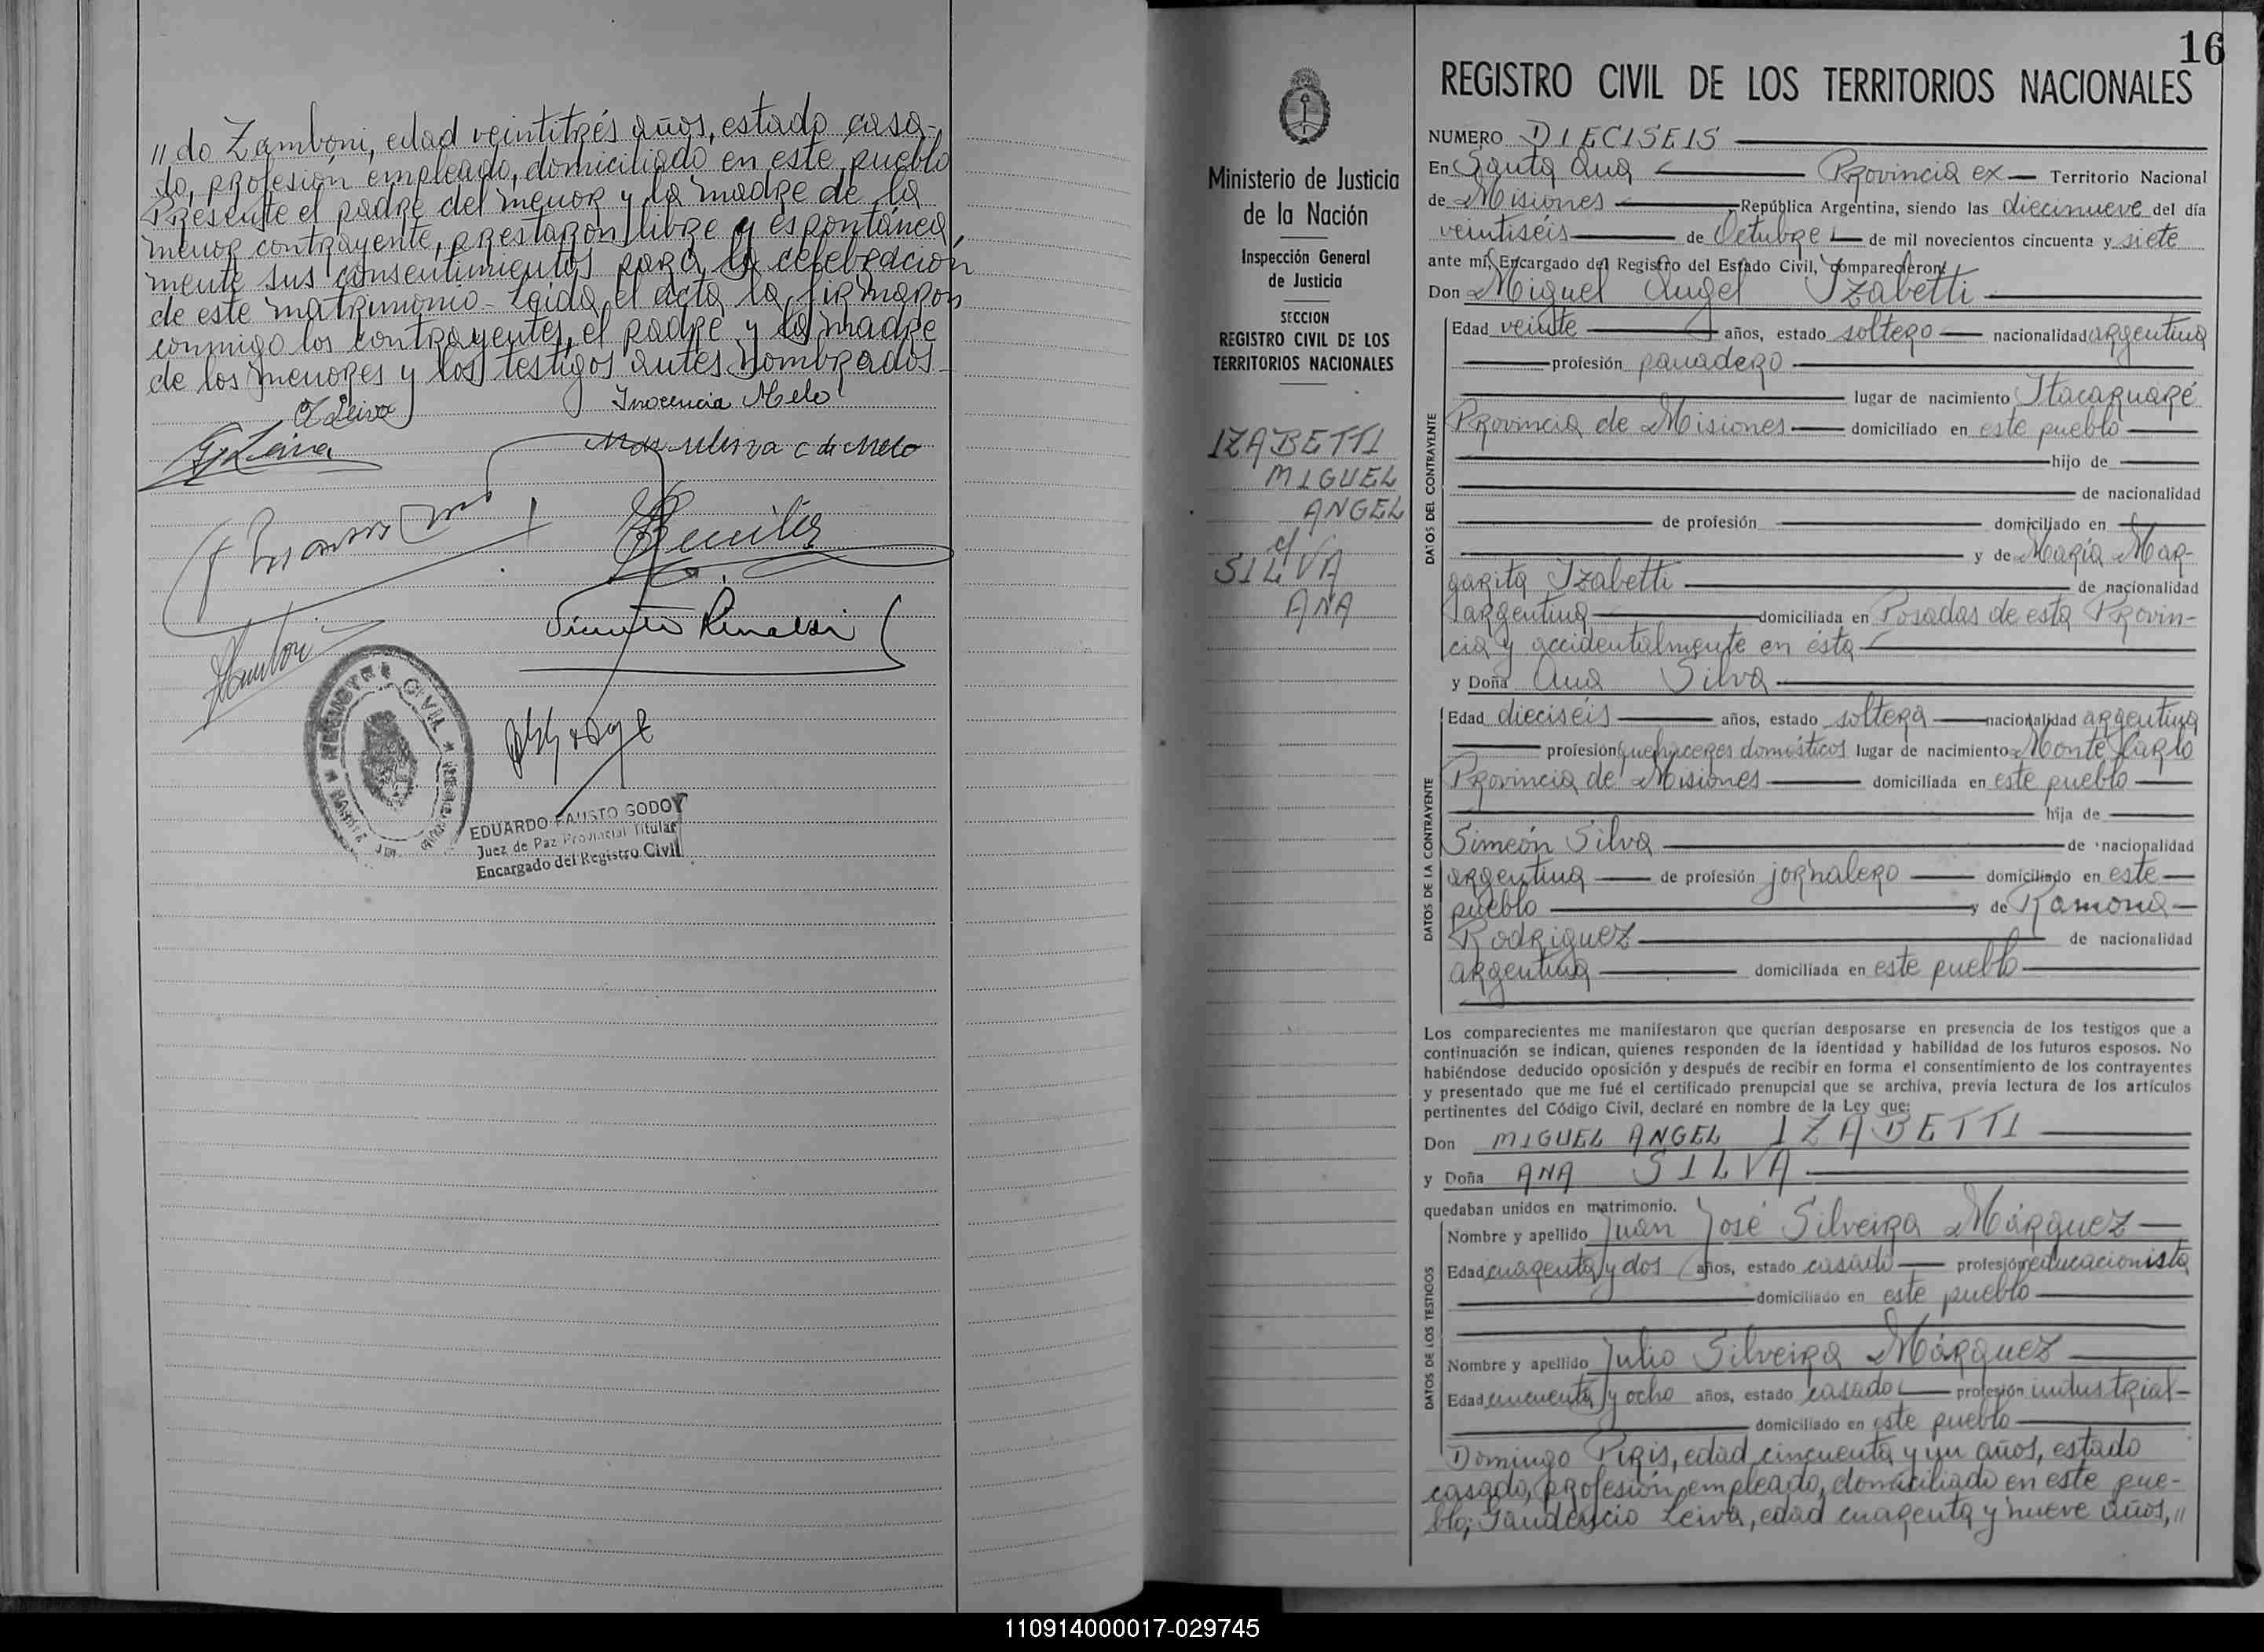 // do Zamboni, edad veintitrés años, estado casa-
do, profesión empleado, domiciliado en este pueblo
Presente el padre del menor y la madre de la
menor contrayente, prestaron libre y espontánea
mente sus consentimientos para la celebración
de este matrimonio - Leida el acta la firmaron
conmigo los contrayentes, el padre y la madre
de los menores y los testigos antes nombrados -
Leiva
Inocencia Melo
Leiva
C de Melo
Vicente
REGISTRO CIVIL
EDUARDO FAUSTO GODOY
Juez de Paz Provincial Titular
Encargado del Registro Civil
16
Ministerio de Justicia
de la Nación
Inspección General
de Justicia
SECCION
REGISTRO CIVIL DE LOS
TERRITORIOS NACIONALES
IZABETTI
MIGUEL
ANGEL
y
SILVA
ANA
REGISTRO CIVIL DE LOS TERRITORIOS NACIONALES
NUMERO DIECISEIS
En Santa Ana Provincia ex- Territorio Nacional
de Misiones República Argentina, siendo las diecinueve del día
veintiséis de Octubre de mil novecientos cincuenta y siete
ante mí, Encargado del Registro del Estado Civil, comparecieron:
Don Miguel Angel Izabetti
DATOS DEL CONTRAYENTE
Edad veinte años, estado soltero nacionalidad argentina
profesión panadero
lugar de nacimiento Itacaruaré
Provincia de Misiones domiciliado en este pueblo
hijo de
de nacionalidad
de profesión domiciliado en
y de María Mar-
garita Izabetti de nacionalidad
argentina domiciliada en Posadas de esta Provin-
cia y accidentalmente en ésta
y Doña Ana Silva
DATOS DE LA CONTRAYENTE
Edad dieciséis años, estado soltera nacionalidad argentina
profesión quehaceres domésticos lugar de nacimiento Monte Carlo
Provincia de Misiones domiciliada en este pueblo
hija de
Simeón Silva de nacionalidad
argentina de profesión jornalero domiciliado en este
pueblo y de Ramona
Rodriguez de nacionalidad
argentina domiciliada en este pueblo
Los comparecientes me manifestaron que querían desposarse en presencia de los testigos que a
continuación se indican, quienes responden de la identidad y habilidad de los futuros esposos. No
habiéndose deducido oposición y después de recibir en forma el consentimiento de los contrayentes
y presentado que me fué el certificado prenupcial que se archiva, previa lectura de los artículos
pertinentes del Código Civil, declaré en nombre de la Ley que:
Don MIGUEL ANGEL IZABETTI
y Doña ANA SILVA
quedaban unidos en matrimonio.
DATOS DE LOS TESTIGOS
Nombre y apellido Juan José Silveira Márquez
Edad cuarenta y dos años, estado casado profesión educacionista
domiciliado en este pueblo
Nombre y apellido Julio Silveira Márquez
Edad cincuenta y ocho años, estado casado profesión industrial
domiciliado en este pueblo
Domingo Piris, edad cincuenta y un años, estado
casado, profesión empleado, domiciliado en este pue-
blo; Gaudencio Leiva, edad cuarenta y nueve años, //
110914000017-029745